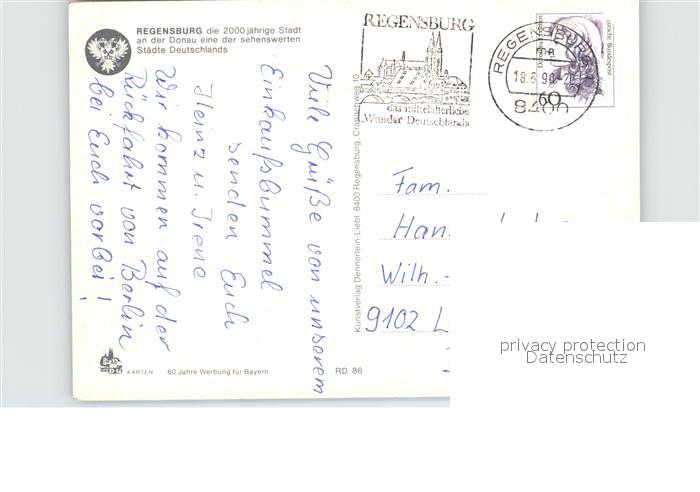 REGENSBURG die 2000 jährige Stadt
an der Donau eine der sehenswerten
Städte Deutschlands
Viele Grüße von unserem
Einkaufsbummel
senden Euch
Heinz u. Irene
Wir kommen auf der
Rückfahrt von Berlin
bei Euch vorbei!
KARTEN
60 Jahre Werbung für Bayern
RD 86
Kunstverlag Dennerlein-Liebl, 8400 Regensburg,
REGENSBURG
das mittelalterliche
Wunder Deutschlands
REGENSBURG
8400
60
Deutsche Bundespost
Fam.
Han
Wilh.-
9102 L
privacy protection
Datenschutz